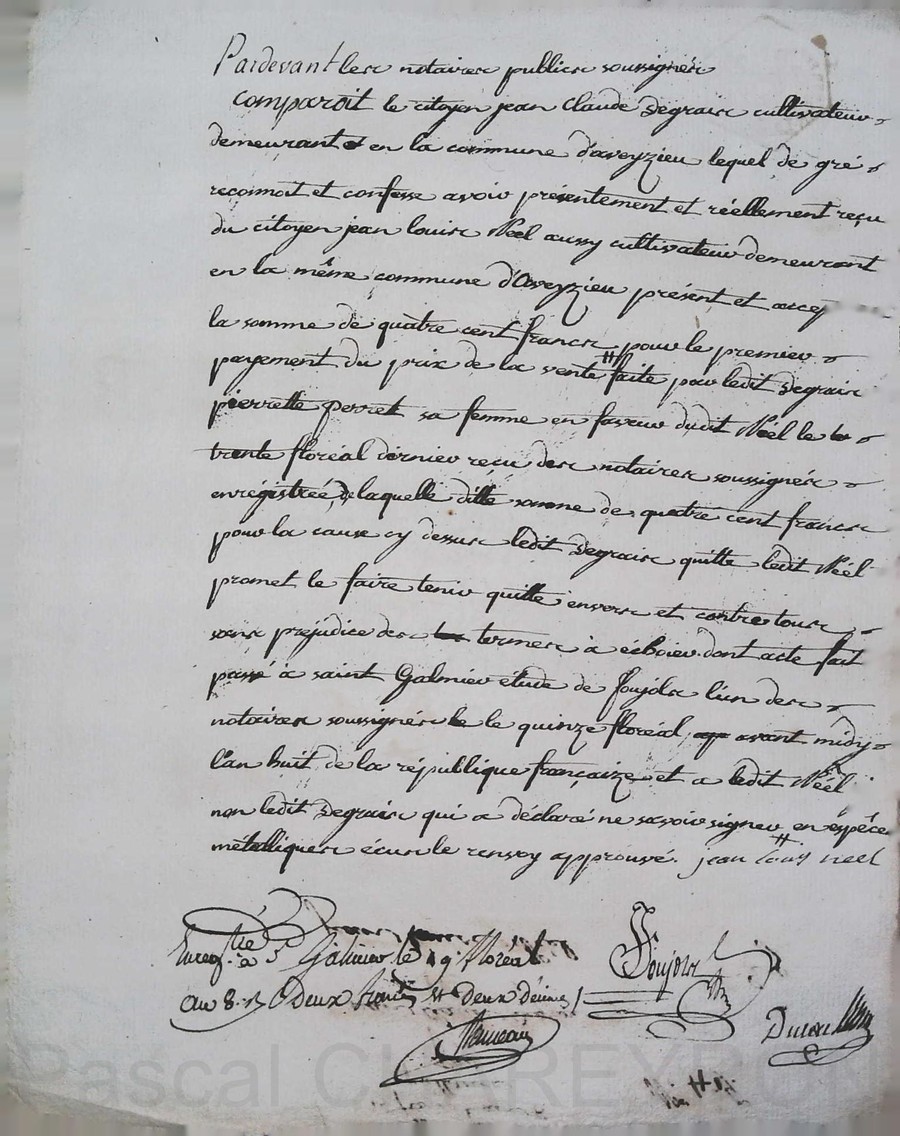 Pardevant les notaires publics soussignés
comparoit le citoyen jean claude Degrais cultivateur
demeurant en la commune d'aveyzieu lequel de gré
reconnoit et confesse avoir présentement et réellement reçu
du citoyen jean louis Néel aussy cultivateur demeurant
en la même commune d'aveyzieu présent et accep
la somme de quatre cent francs pour le premier
payement du prix de la vente # faite par ledit Degrais
pierrette perret sa femme en faveur dudit Néel le
trente floréal dernier reçu des notaires soussignés
enregistrée, de laquelle ditte somme de quatre cent francs
pour la cause cy dessus ledit Degrais quitte ledit Néel
promet le faire tenir quitte envers et contre tous
sans préjudice des termes à échoir dont acte fait
passé à saint Galmier étude de foujols l'un des
notaires soussignés le quinze floréal avant midy
l'an huit de la république françaize et a ledit Néel
non ledit Degrais qui a déclaré ne savoir signer, en espèces
métalliques écus le renvoy approuvé. jean louis neel
Enregistré à St Galmier le 19 floréal
an 8. R. Deux francs et deux décimes
Foujols